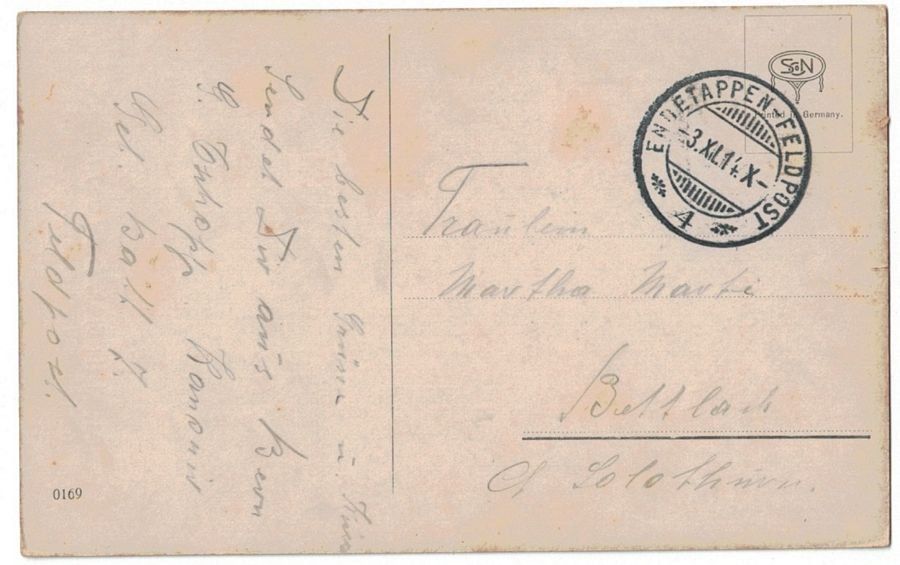 Die besten Grüsse u. Küsse
Sendet Dir aus Bern
G. Tschopp Kanonier
Batt
Feldpost.
0169
SoN
Printed in Germany.
ENDETAPPEN-FELDPOST
-3.XII.14.X-
4
Fräulein
Martha Marti
Bettlach
Ct Solothurn.